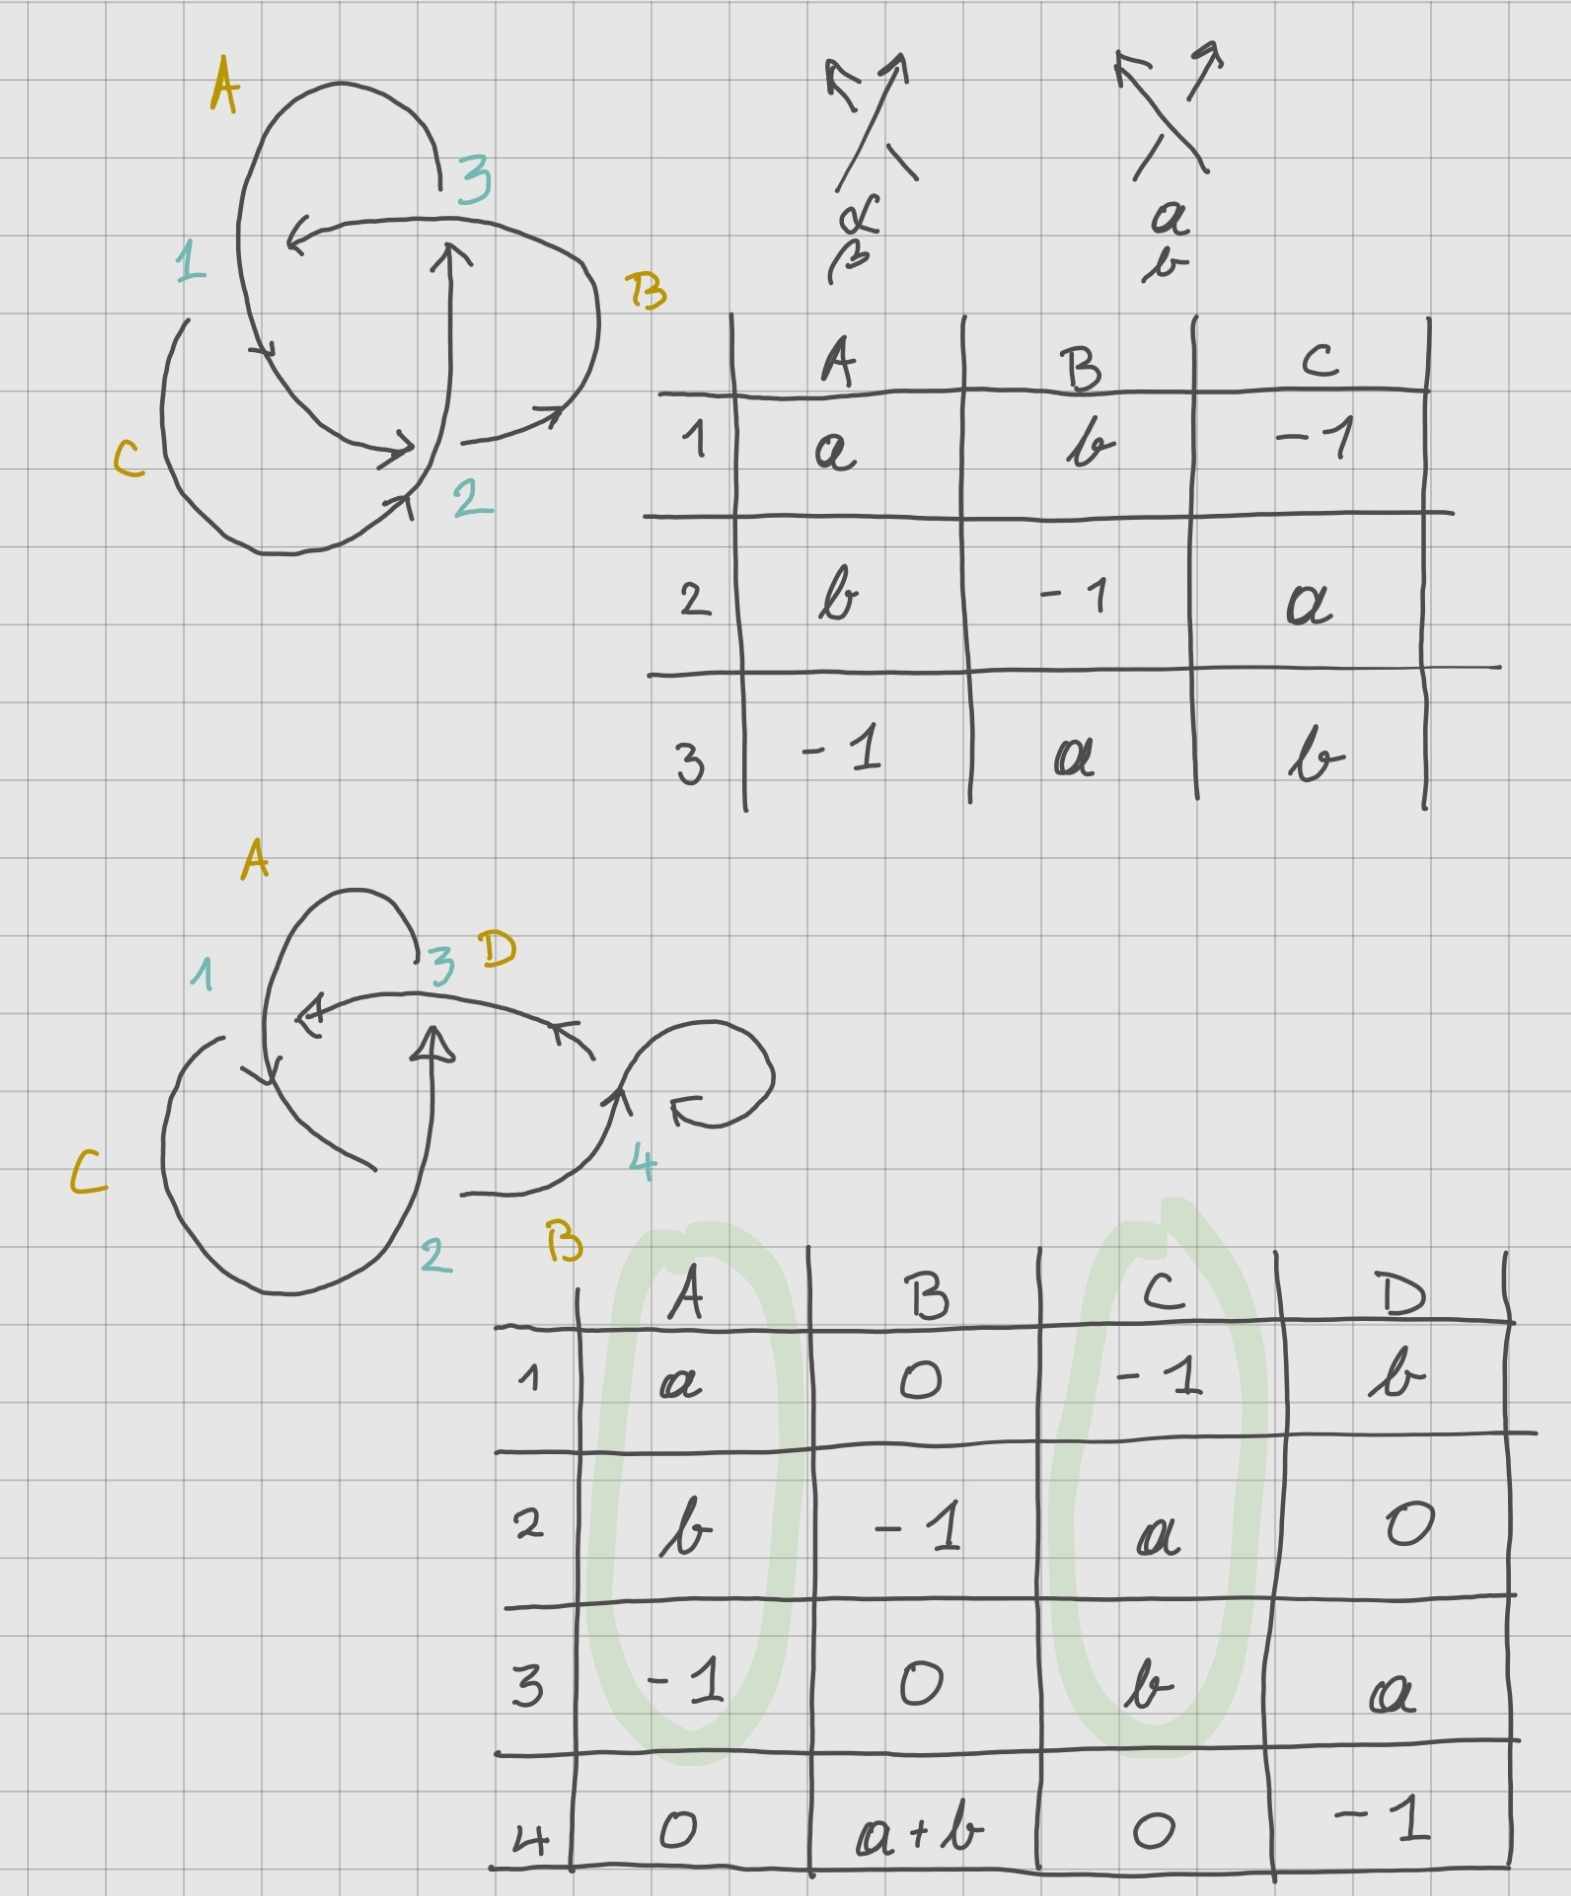 A
3
1
B
C
2
α a
β b
A B C
1 a b -1
2 b -1 a
3 -1 a b
A
1
3 D
C
4
2
B
A B C D
1 a 0 -1 b
2 b -1 a 0
3 -1 0 b a
4 0 a+b 0 -1